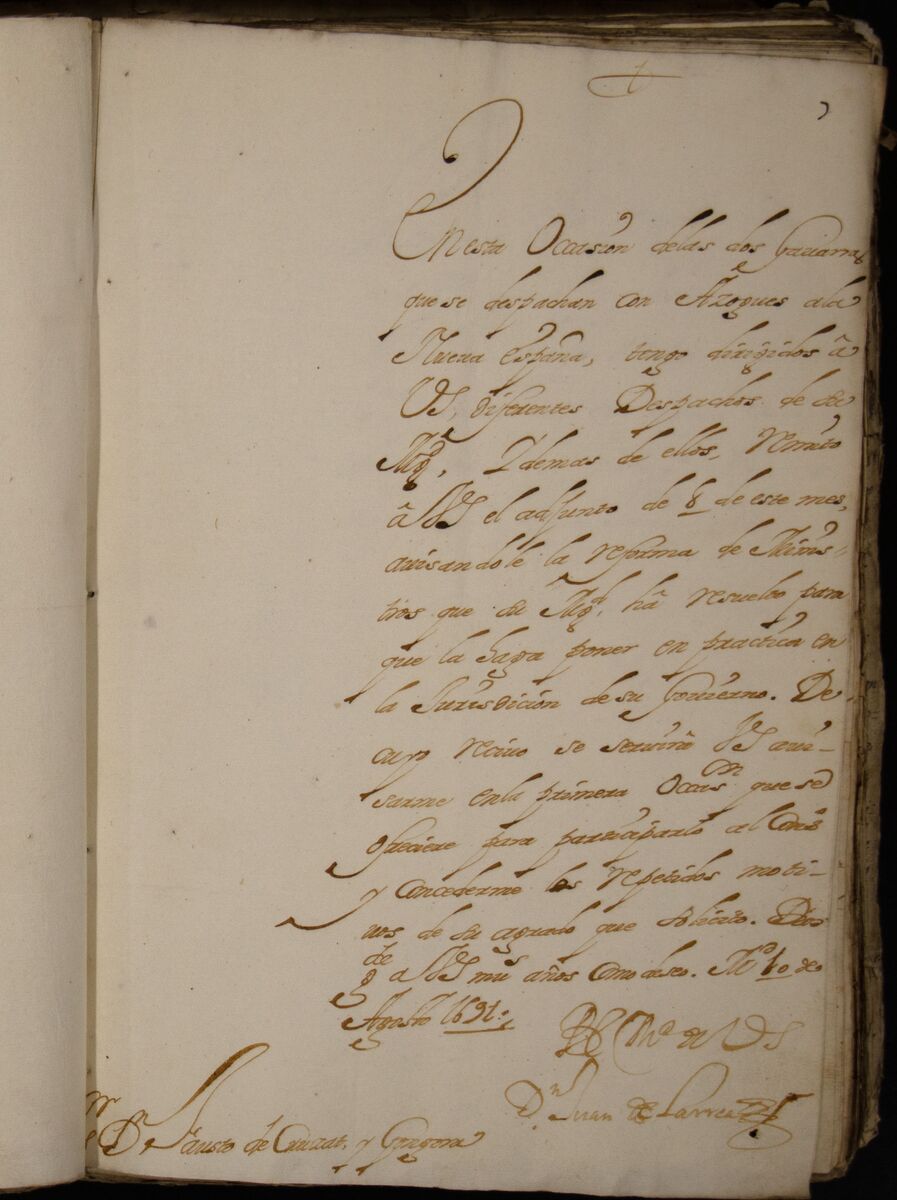 En esta Occasion delas dos Gauarras
que se despachan con Azogues ala
Nueua España, tengo dirigidos â
VS, diferentes Despachos de su
Mg.d, Y demas de ellos, remito
â VS el adjunto de 8 de este mes,
auisandole la reforma de Minis-
tros que su Mg.d hâ resuelto para
que la haga poner en practica en
la Jurisdicion de su Gouierno. De
cuyo reciuo se seruirâ VS aui-
sarme enla primera Occas.n que se
ofreciere para participarlo al Cons.o
y Concederme los repetidos moti-
uos de su agrado que solicito. Dios
g.de a VS m.s años Como deseo. M.d 10 de
Agosto 1691.
BL M.o de VS
D.n Juan de Larrea
S.r D.n Fausto de Cruzat, y Gongora